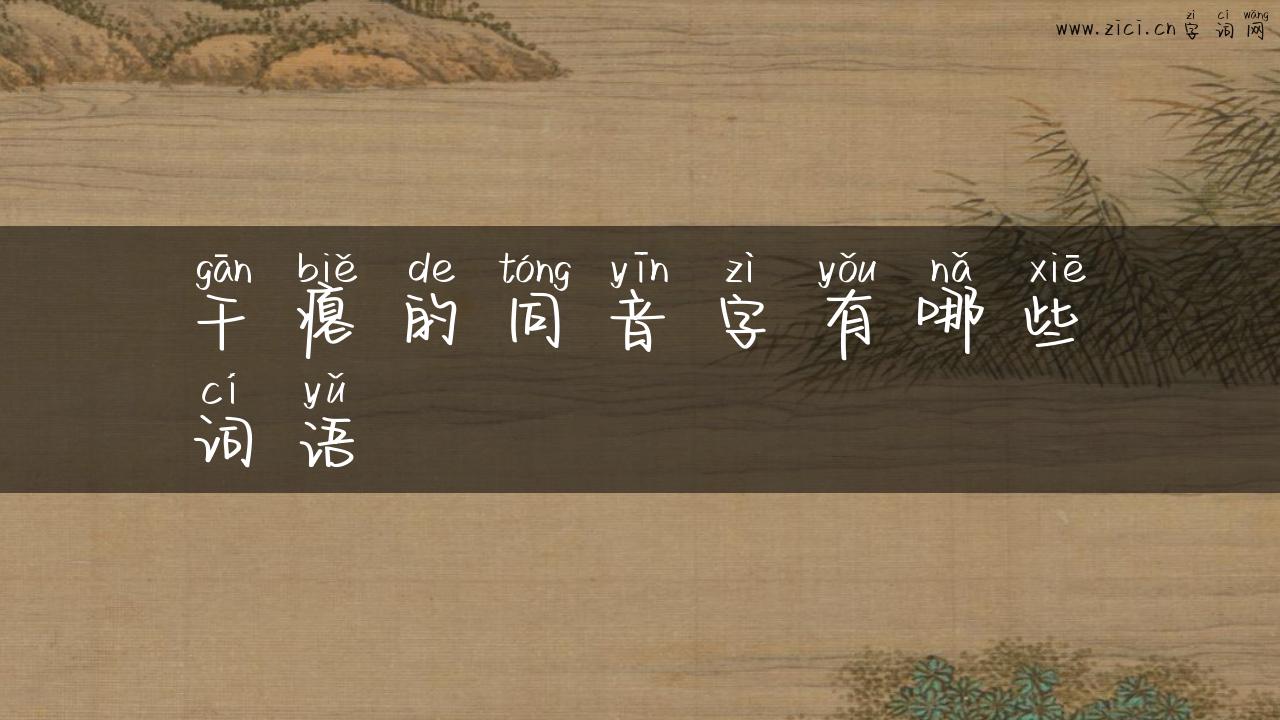 zì cí wǎng
www.zici.cn 字词网
gān biě de tóng yīn zì yǒu nǎ xiē
干瘪的同音字有哪些
cí yǔ
词语